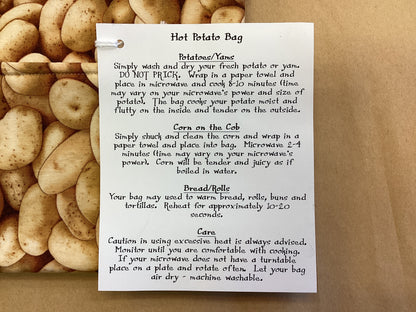 Hot Potato Bag
Potatoes/Yams
Simply wash and dry your fresh potato or yam.
DO NOT PRICK. Wrap in a paper towel and
place in microwave and cook 8-10 minutes (time
may vary on your microwave's power and size of
potato). The bag cooks your potato moist and
fluffy on the inside and tender on the outside.
Corn on the Cob
Simply shuck and clean the corn and wrap in a
paper towel and place into bag. Microwave 2-4
minutes (time may vary on your microwave's
power). Corn will be tender and juicy as if
boiled in water.
Bread/Rolls
Your bag may used to warm bread, rolls, buns and
tortillas. Reheat for approximately 10-20
seconds.
Care
Caution in using excessive heat is always advised.
Monitor until you are comfortable with cooking.
If your microwave does not have a turntable
place on a plate and rotate often. Let your bag
air dry - machine washable.